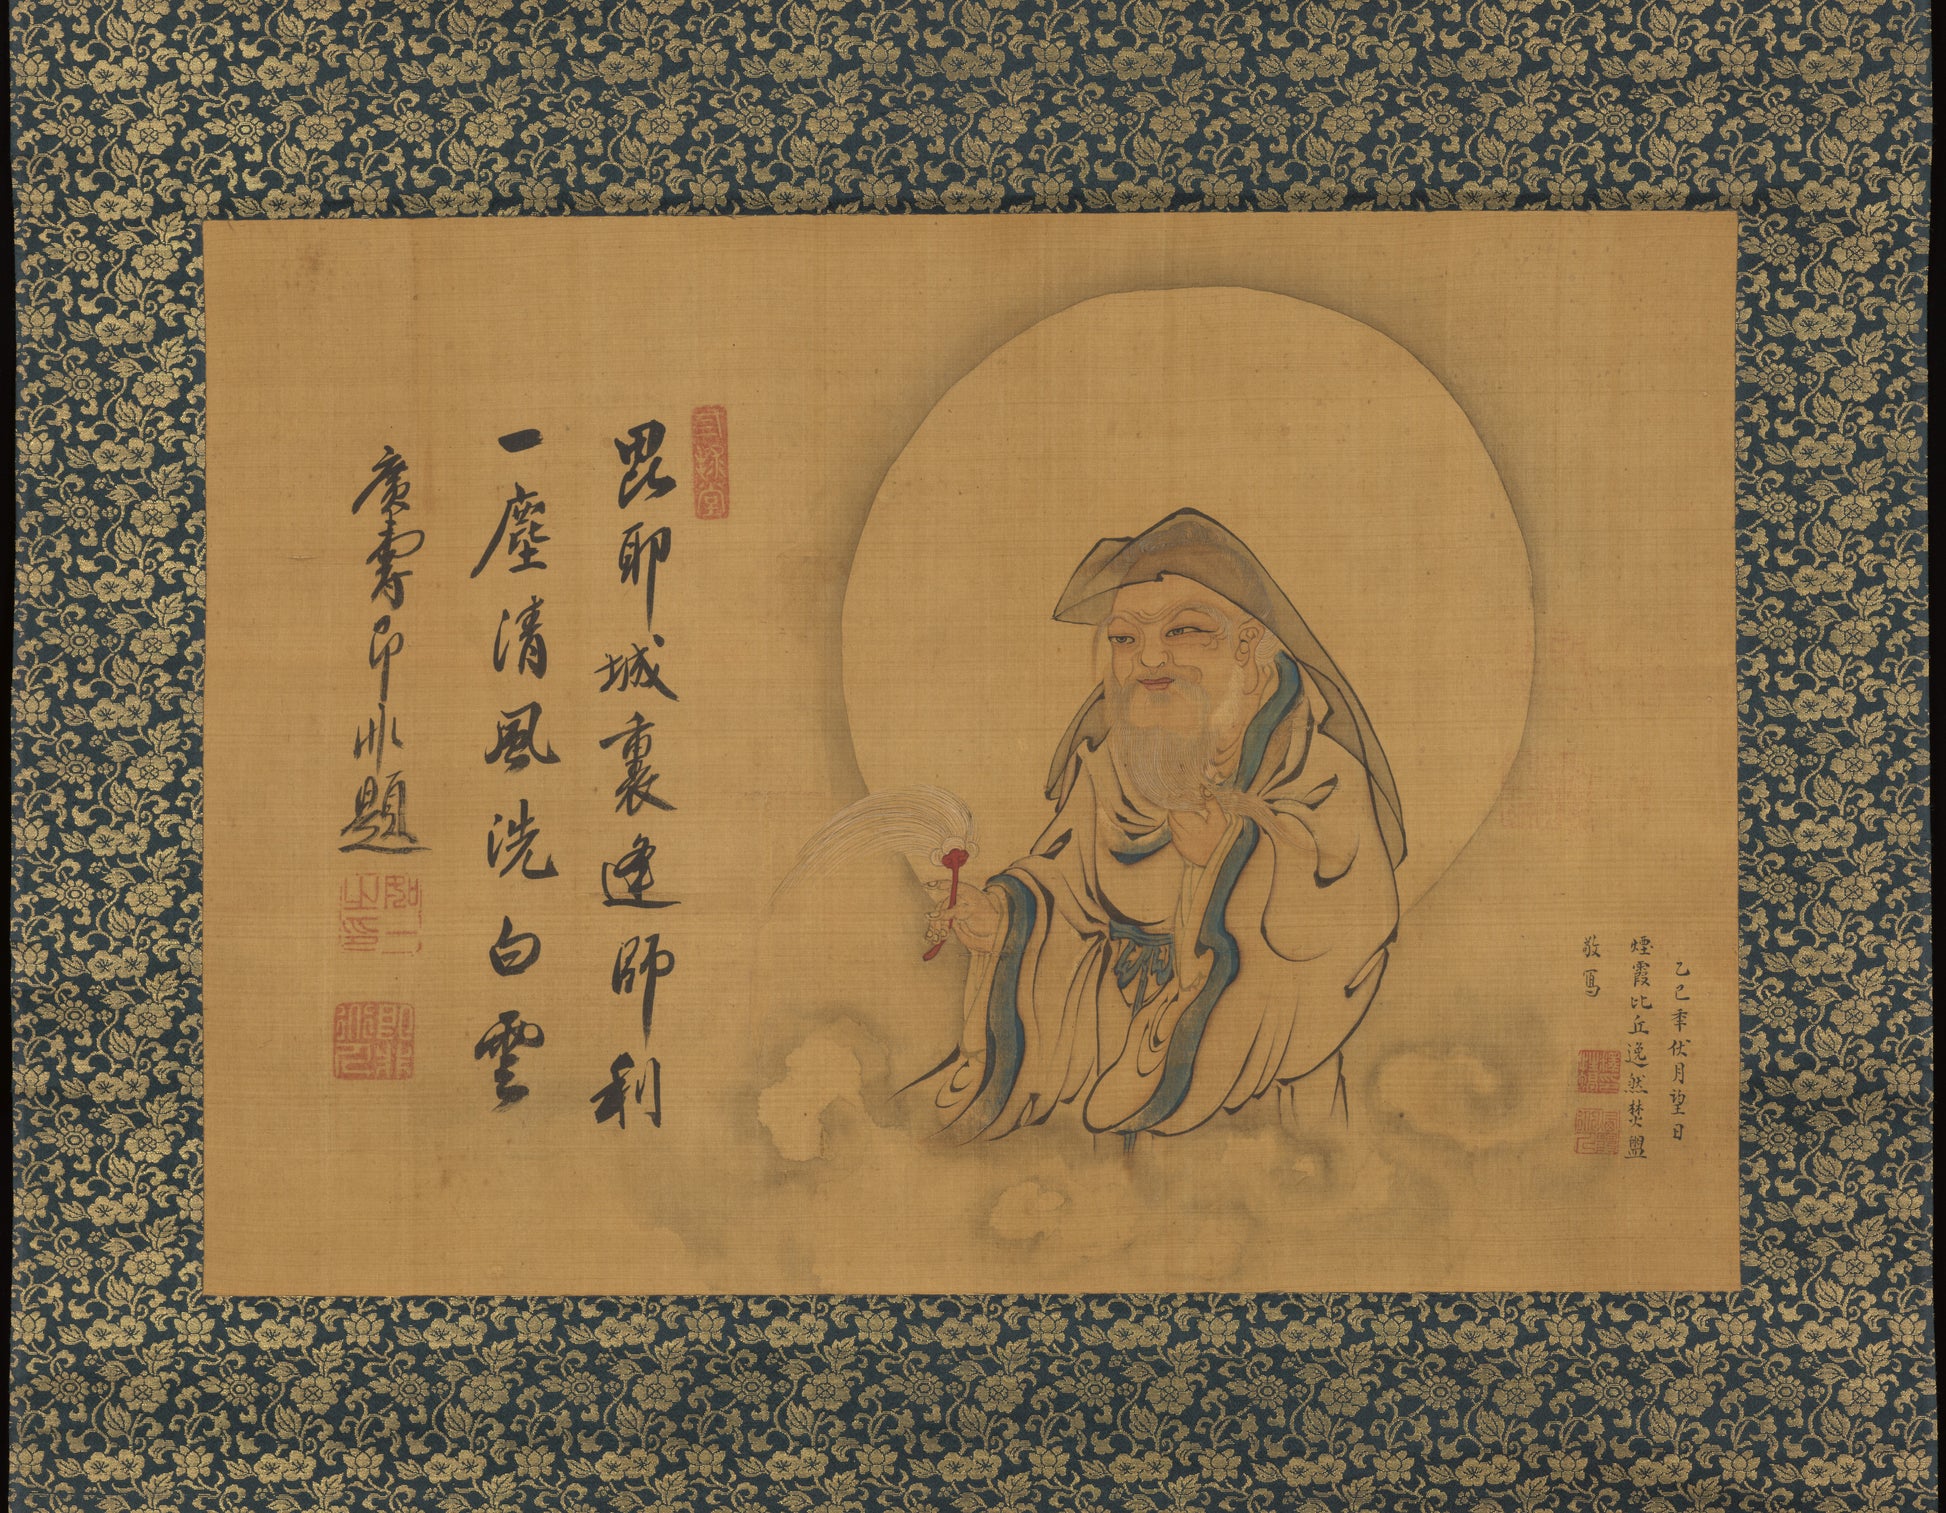 乙巳秊伏月望日
煙霞比丘逸然焚盥
敬寫
毘耶城裏逢師利
一麈清風洗白雲
廣壽即非題
如一之印